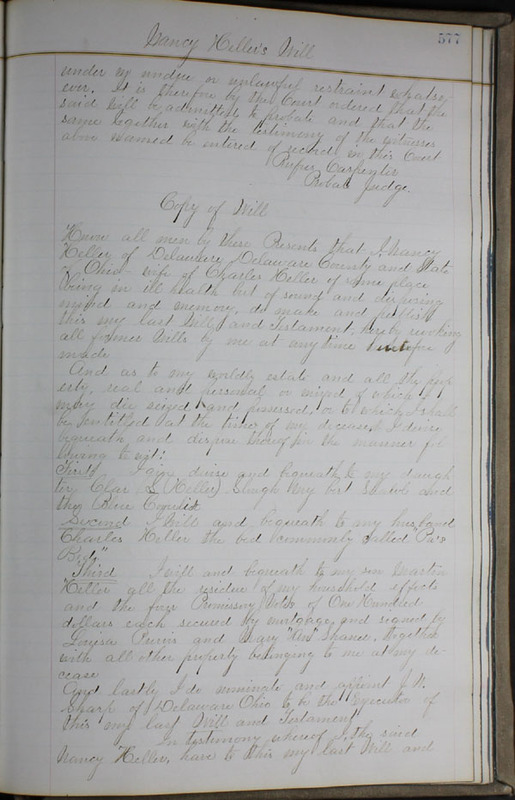 Nancy Heller's Will
577
under any undue or unlawful restraint whatso
ever. It is therefore by this Court ordered that the
said will be admitted to probate and that the
same together with the testimony of the witnesses
above named be entered of record in this Court
Rufus Carpenter
Probate Judge.
Copy of Will
Know all men by these Presents that I Nancy
Heller of Delaware, Delaware County and State
of Ohio wife of Charles Heller of same place
being in ill health but of sound and disposing
mind and memory, do make and publish
this my last Will and Testament, hereby revoking
all former Wills by me at any time heretofore
made
And as to my worldly estate and all the prop
erty, real and personal or mixed of which I
may die seized and possessed, or to which I shall
be entitled at the time of my decease I devise
bequeath and dispose thereof in the manner fol
lowing to wit:
First. I give devise and bequeath to my daugh
ter Clar S (Heller) Slough my best and
the Blue
Second I Will and bequeath to my husband
Charles Heller the bed commonly called Pa's
Bed"
Third I will and bequeath to my son Martin
Heller all the residue of my household effects
and the four Promissory Notes of One Hundred
dollars each secured by mortgage and signed by
Louisa and Mary Together
with all other property belonging to me at my de-
cease
And lastly I do nominate and appoint J. H.
Sharp of Delaware Ohio to be the Executor of
this my last Will and Testament
In testimony whereof I the said
Nancy Heller, have to this my last Will and